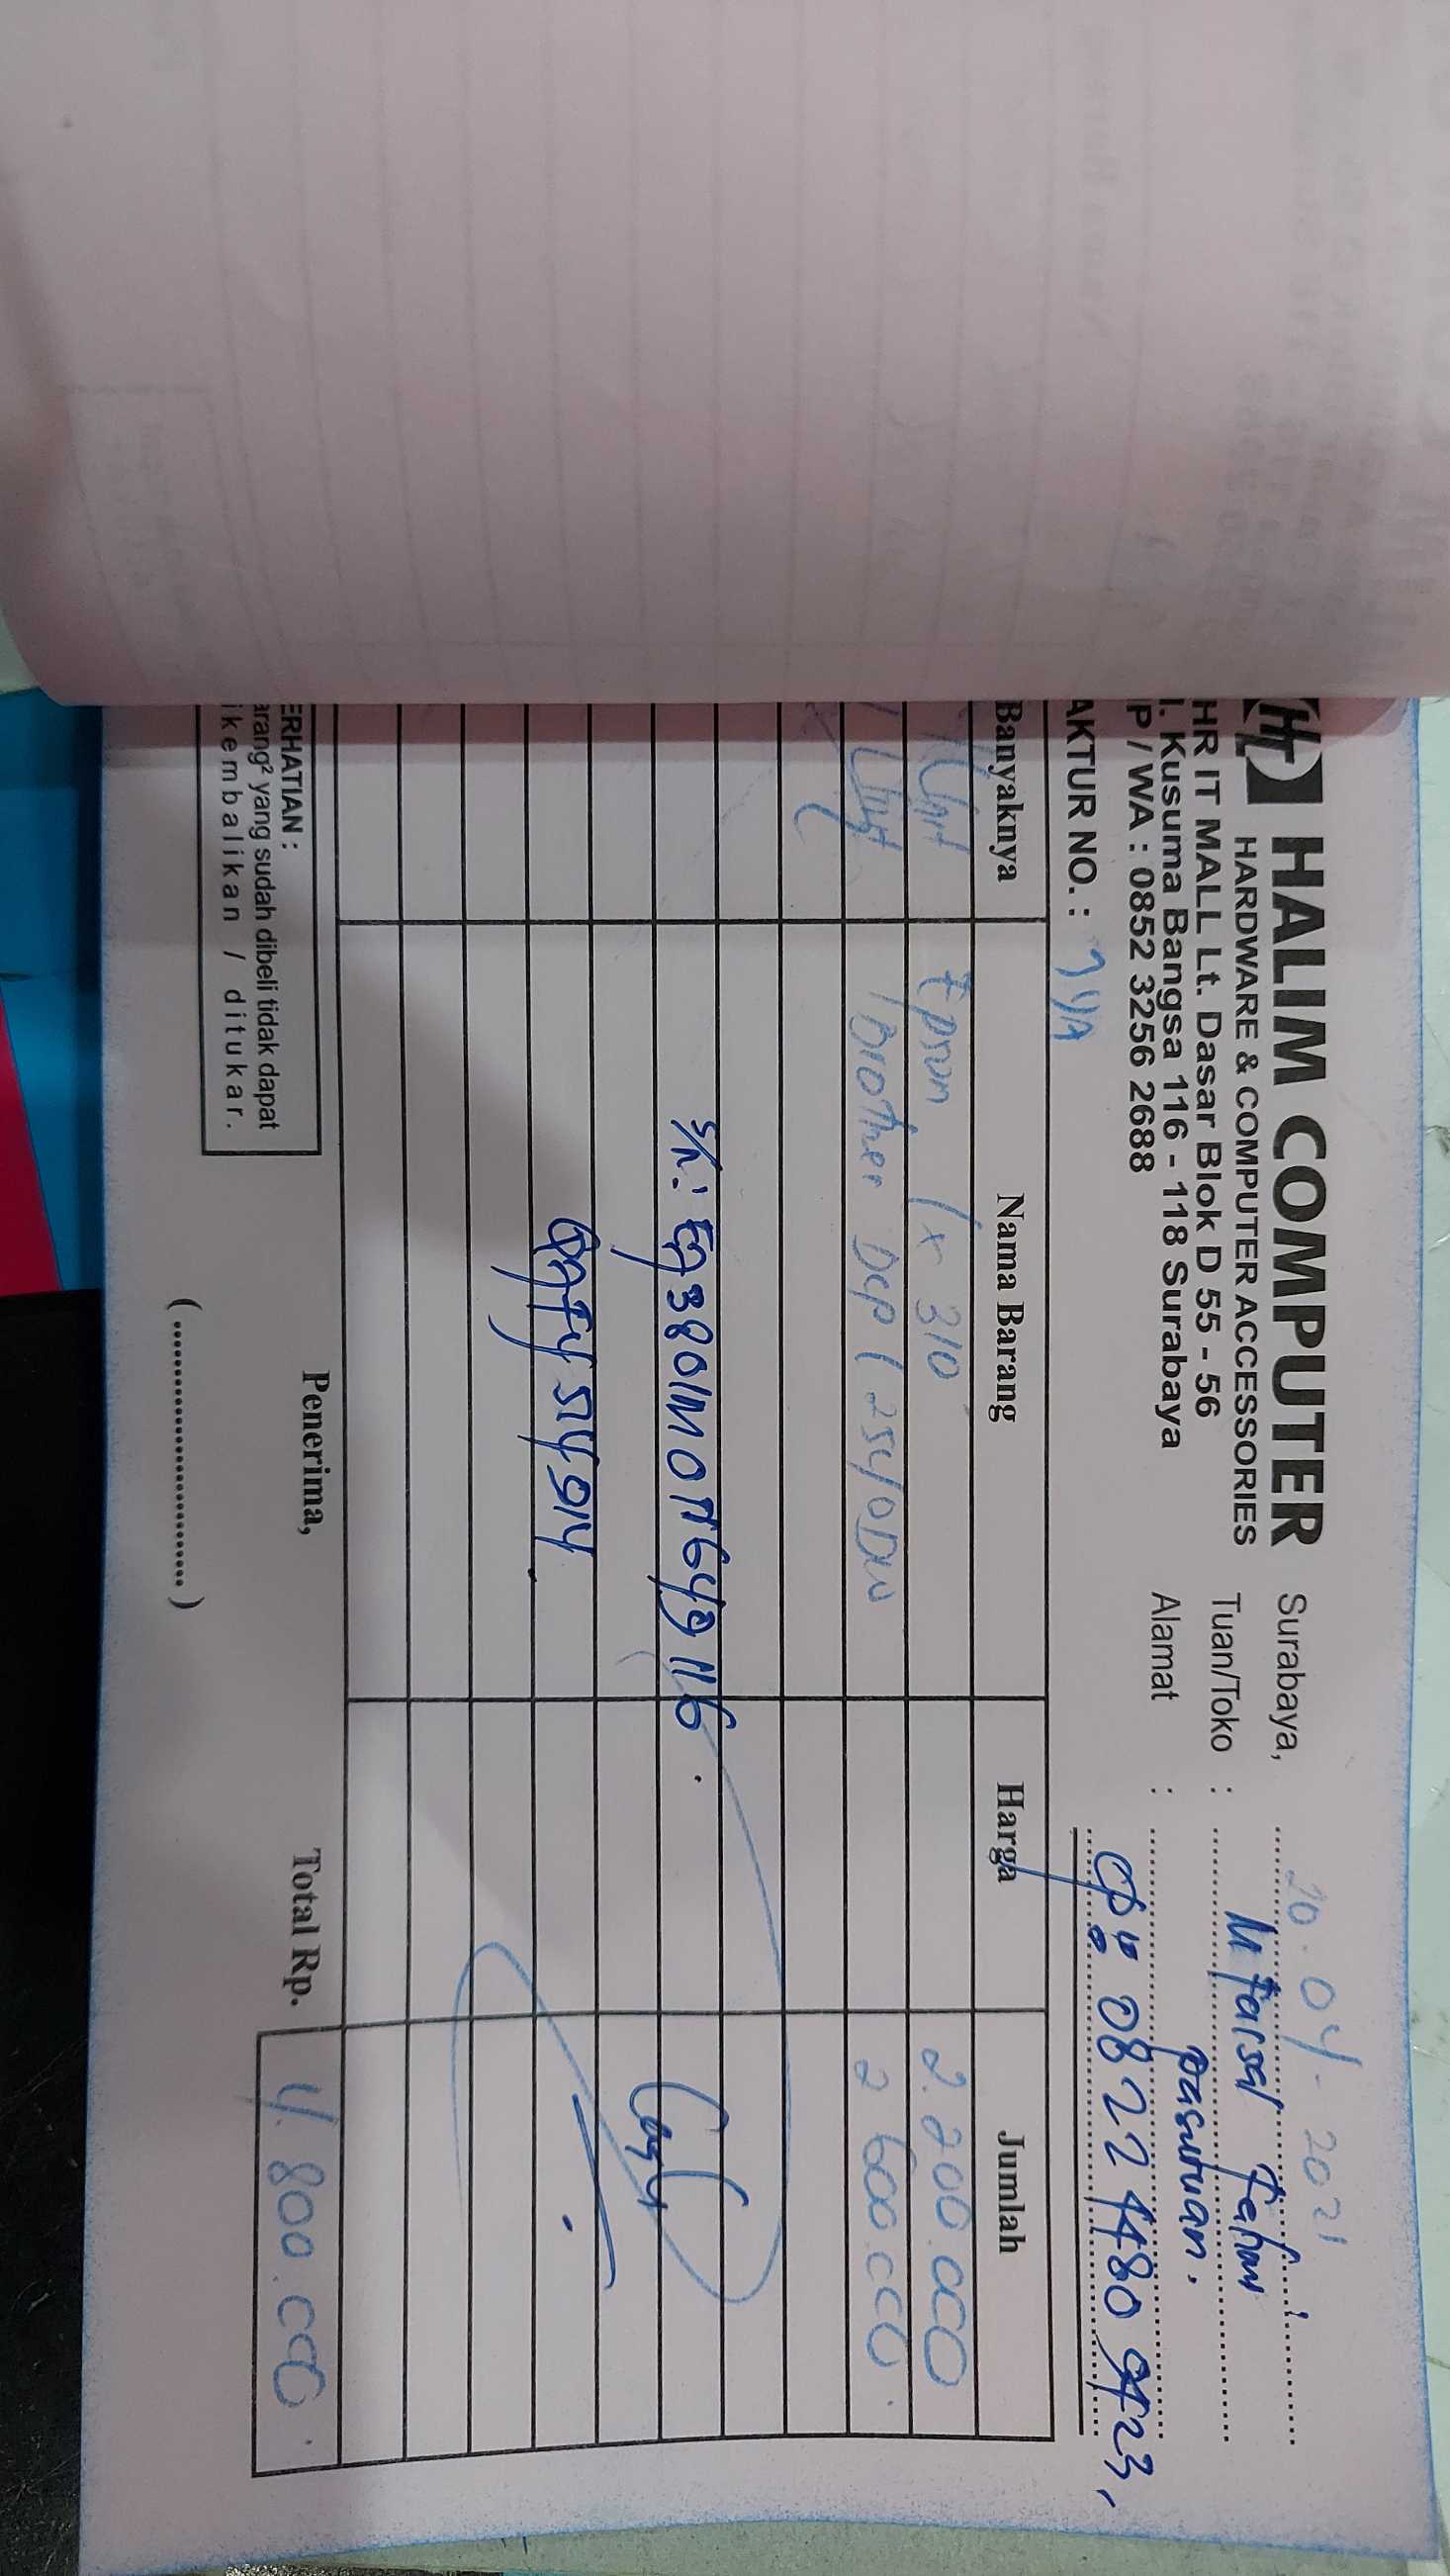 HALIM COMPUTER
HARDWARE & COMPUTER ACCESSORIES
HR IT MALL Lt. Dasar Blok D 55 - 56
l. Kusuma Bangsa 116 - 118 Surabaya
P / WA : 0852 3256 2688
Surabaya, 20-04-2021
Tuan/Toko :
Alamat : pasuruan.
CP: 0822
AKTUR NO. :
Banyaknya Nama Barang Harga Jumlah
Unit Epson Lx 310 2.200.000
Unit Brother DCP 2.600.000
S/N:
Cash
ERHATIAN :
arang² yang sudah dibeli tidak dapat
ikembalikan / ditukar.
Penerima,
Total Rp. 4.800.000
(........................)